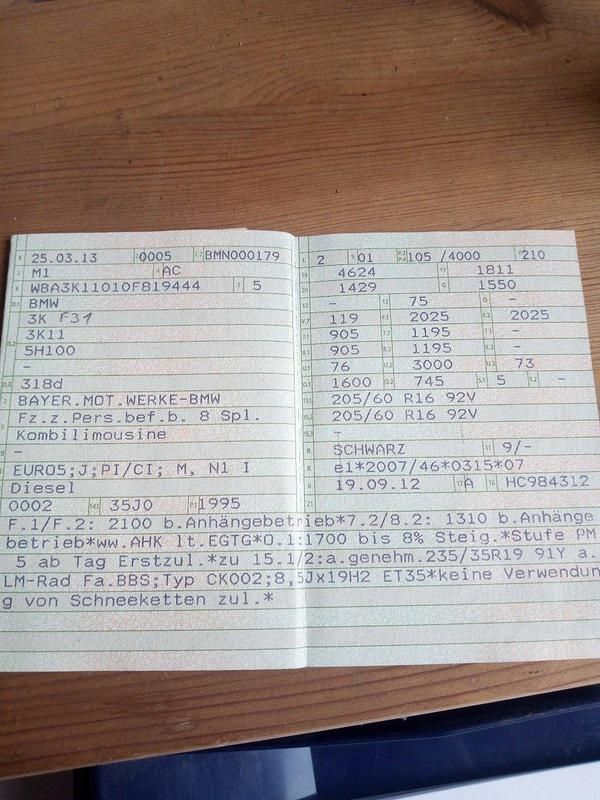 B 25.03.13 0005 BMN000179
M1 AC
E WBA3K11010F819444 5
D.1 BMW
3K F31
D.2 3K11
5H100
-
D.3 318d
2 BAYER.MOT.WERKE-BMW
Fz.z.Pers.bef.b. 8 Spl.
Kombilimousine
-
EURO5;J;PI/CI; M, N1 I
Diesel
0002 35J0 P.1 1995
L 2 9 01 P.2 P.4 105 /4000 T 210
18 4624 19 1811
20 1429 G 1550
12 - 13 75 Q -
V.7 119 F.1 2025 F.2 2025
7.1 905 7.2 1195 7.3 -
8.1 905 8.2 1195 8.3 -
U.1 76 U.2 3000 U.3 73
O.1 1600 O.2 745 S.1 5 S.2 -
15.1 205/60 R16 92V
15.2 205/60 R16 92V
15.3 -
R SCHWARZ 11 9/-
K e1*2007/46*0315*07
6 19.09.12 17 A 16 HC984312
21
F.1/F.2: 2100 b.Anhängebetrieb*7.2/8.2: 1310 b.Anhänge
betrieb*ww.AHK lt.EGTG*O.1:1700 bis 8% Steig.*Stufe PM
5 ab Tag Erstzul.*zu 15.1/2:a.genehm.235/35R19 91Y a.
LM-Rad Fa.BBS;Typ CK002;8,5Jx19H2 ET35*keine Verwendun
g von Schneeketten zul.*